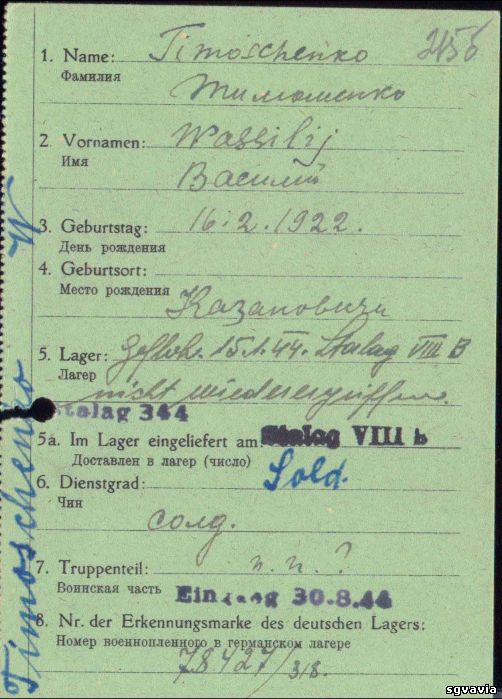 2456
1. Name: Timoschenko
Фамилия
Тимошенко
2. Vornamen: Wassilij
Имя
Василий
3. Geburtstag: 16.2.1922.
День рождения
4. Geburtsort:
Место рождения
Казановичи
5. Lager: Gefloh. 15.1.44. Stalag VIII B
Лагер
nicht wiederergriffen.
Stalag 344
5a. Im Lager eingeliefert am Stalag VIII b
Доставлен в лагер (число)
6. Dienstgrad: Sold.
Чин
солд.
7. Truppenteil: n. n. ?
Воинская часть
Eingang 30.8.44
8. Nr. der Erkennungsmarke des deutschen Lagers:
Номер военнопленного в германском лагере
78427/318.
Timoschenko W
sgvavia